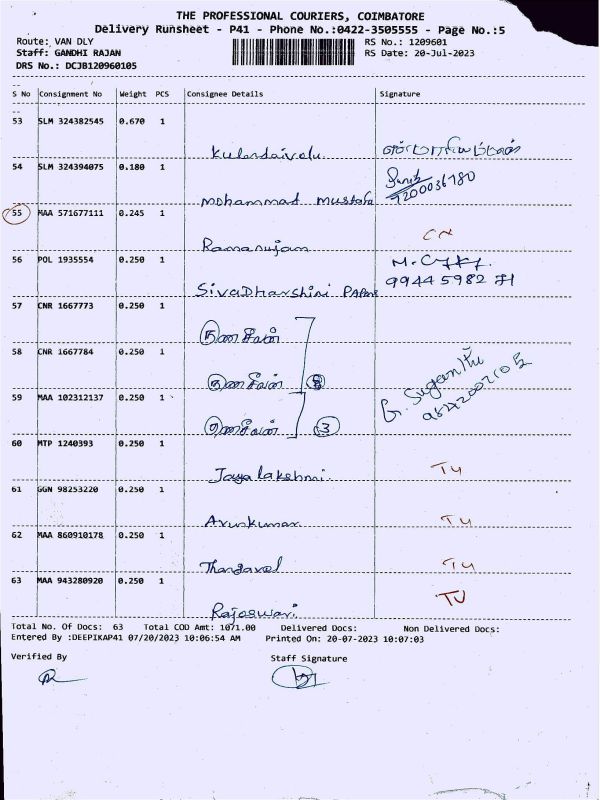 THE PROFESSIONAL COURIERS, COIMBATORE
Delivery Runsheet - P41 - Phone No.:0422-3505555 - Page No.:5
Route: VAN DLY RS No.: 1209601
Staff: GANDHI RAJAN RS Date: 20-Jul-2023
DRS No.: DCJB120960105
S No Consignment No Weight PCS Consignee Details Signature
53 SLM 324382545 0.670 1
Kulandaivelu
54 SLM 324394075 0.180 1
Mohammad Mustafa 7200036780
55 MAA 571677111 0.245 1
Ramanujam CN
56 POL 1935554 0.250 1
Sivadharshini 99445982 71
57 CNR 1667773 0.250 1
58 CNR 1667784 0.250 1
G. Suganthi
59 MAA 102312137 0.250 1
3
60 MTP 1240393 0.250 1
Jayalakshmi. TU
61 GGN 98253220 0.250 1
Arunkumar TU
62 MAA 860910178 0.250 1
Thangavel TU
63 MAA 943280920 0.250 1
Rajeswari. TU
Total No. Of Docs: 63 Total COD Amt: 1071.00 Delivered Docs: Non Delivered Docs:
Entered By :DEEPIKAP41 07/20/2023 10:06:54 AM Printed On: 20-07-2023 10:07:03
Verified By Staff Signature